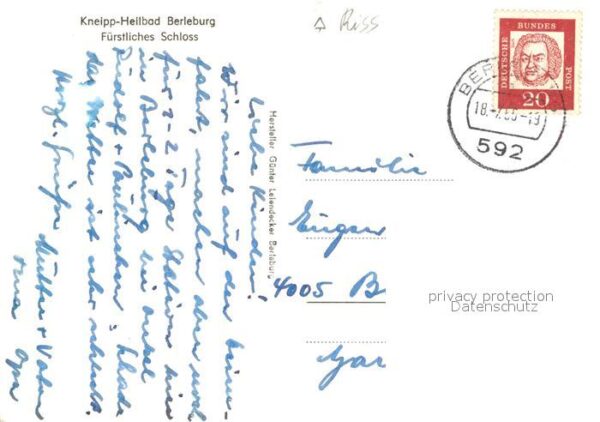 Kneipp-Heilbad Berleburg
Fürstliches Schloss
Riss
DEUTSCHE BUNDESPOST
20
BER
18.
-19
592
Hersteller Günter Leiendecker Berleburg
Liebe Kinder!
Wir sind auf der Heim-
fahrt, machen aber noch
für 1-2 Tage Station hier
in Berleburg bei Onkel
Rudolf + Paulinchen. Schade
das Wetter ist sehr schlecht
Herzl. Grüße Mutter + Vater
Oma Opa
Familie
Eugen
4005 B
Gar
privacy protection
Datenschutz